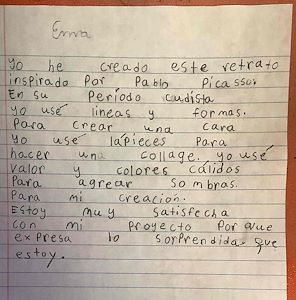 Emma
Yo he creado este retrato
inspirado por Pablo Picasso.
En su Período cudista
yo usé lineas y formas.
Para crear una cara
yo usé lápieces para
hacer una collage. yo usé
valor y colores cálidos
Para agrear sombras.
Para mi creación.
Estoy muy satisfecha
con mi proyecto porque
expresa lo sorprendida que
estoy.